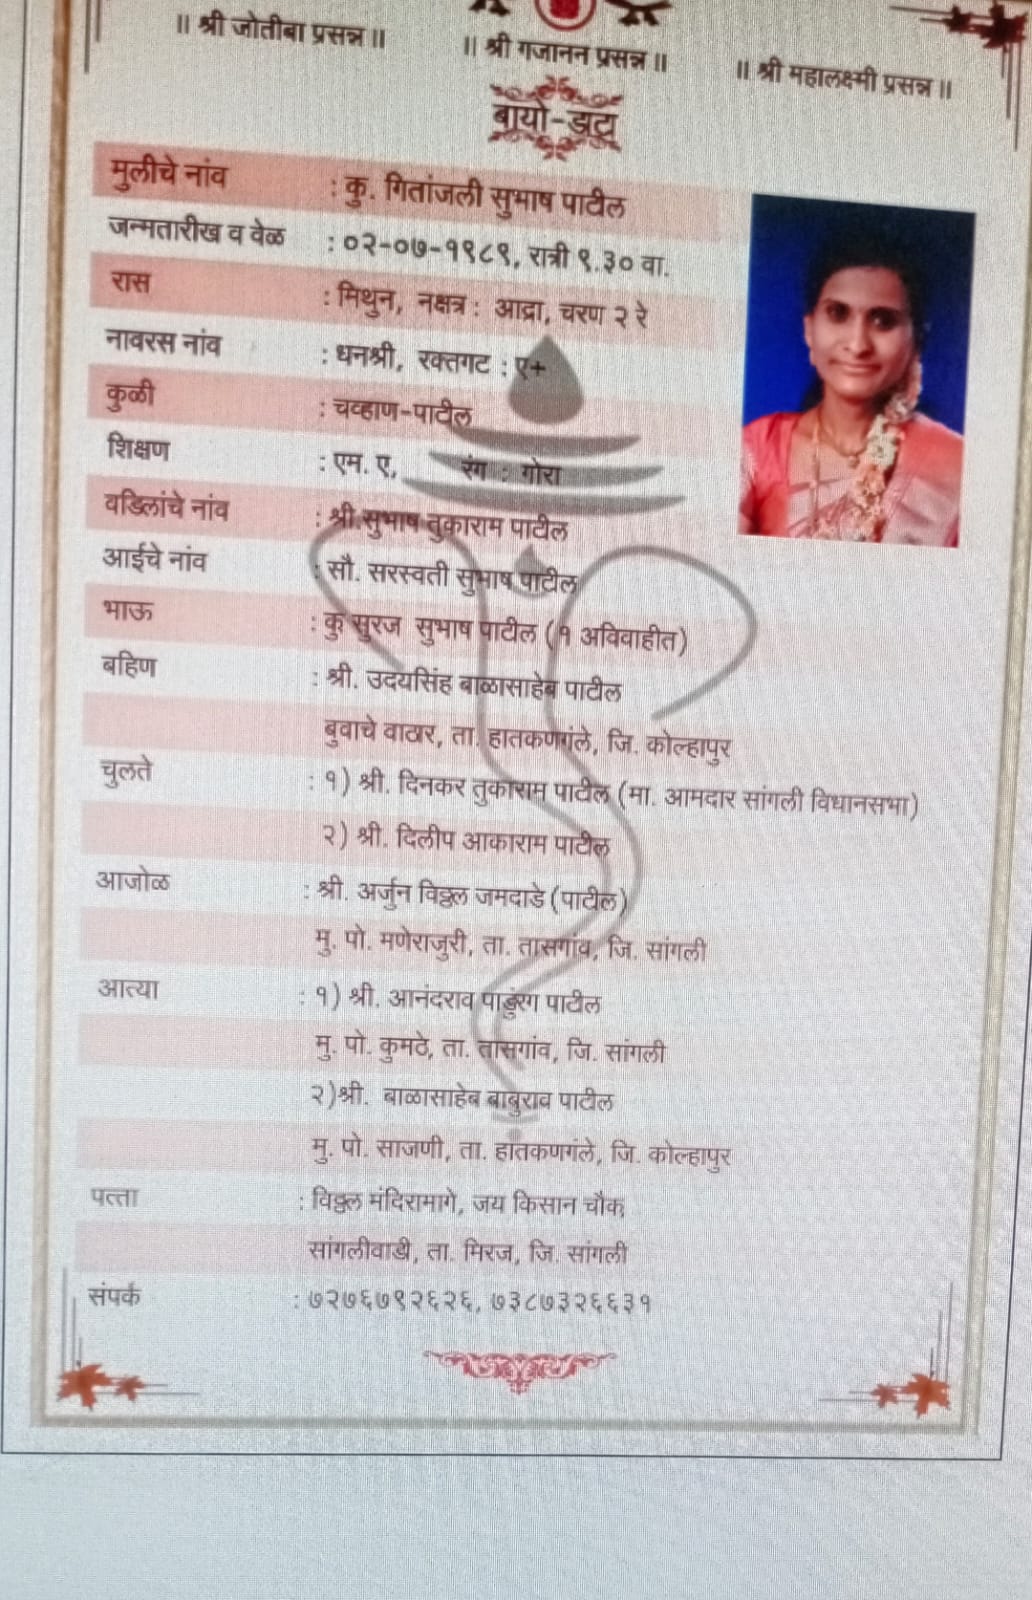 ॥ श्री जोतीबा प्रसन्न ॥ ॥ श्री गजानन प्रसन्न ॥ ॥ श्री महालक्ष्मी प्रसन्न ॥
बायो-डाटा
मुलीचे नांव : कु. गितांजली सुभाष पाटील
जन्मतारीख व वेळ : ०२-०७-१९८९, रात्री ९.३० वा.
रास : मिथुन, नक्षत्र : आद्रा, चरण २ रे
नावरस नांव : धनश्री, रक्तगट : ए+
कुळी : चव्हाण-पाटील
शिक्षण : एम. ए, रंग : गोरा
वडिलांचे नांव : श्री.सुभाष तुकाराम पाटील
आईचे नांव : सौ. सरस्वती सुभाष पाटील
भाऊ : कु सुरज सुभाष पाटील (१ अविवाहीत)
बहिण : श्री. उदयसिंह बाळासाहेब पाटील
बुवाचे वाठार, ता. हातकणगंले, जि. कोल्हापुर
चुलते : १) श्री. दिनकर तुकाराम पाटील (मा. आमदार सांगली विधानसभा)
२) श्री. दिलीप आकाराम पाटील
आजोळ : श्री. अर्जुन विठ्ठल जमदाडे (पाटील)
मु. पो. मणेराजुरी, ता. तासगांव, जि. सांगली
आत्या : १) श्री. आनंदराव पाडुंरग पाटील
मु. पो. कुमठे, ता. तासगांव, जि. सांगली
२)श्री. बाळासाहेब बाबुराव पाटील
मु. पो. साजणी, ता. हातकणगंले, जि. कोल्हापुर
पत्ता : विठ्ठल मंदिरामागे, जय किसान चौक,
सांगलीवाडी, ता. मिरज, जि. सांगली
संपर्क : ७२७६७९२६२६, ७३८७३२६६३१